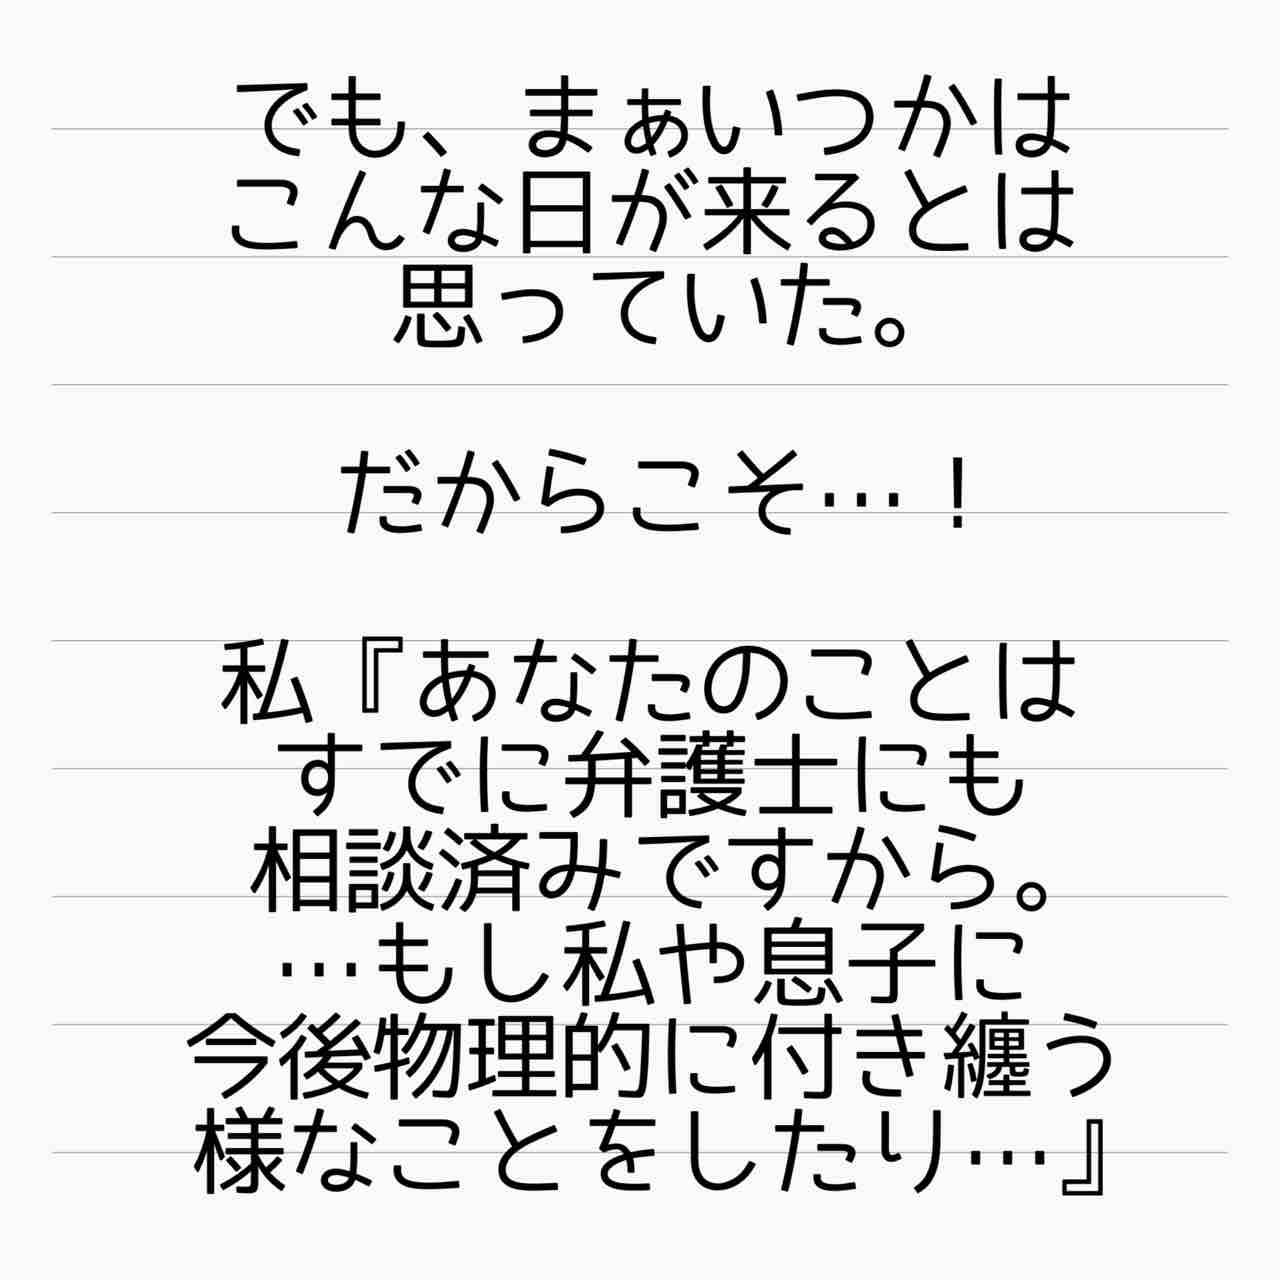 でも、まぁいつかは
こんな日が来るとは
思っていた。
だからこそ…！
私『あなたのことは
すでに弁護士にも
相談済みですから。
…もし私や息子に
今後物理的に付き纏う
様なことをしたり…』